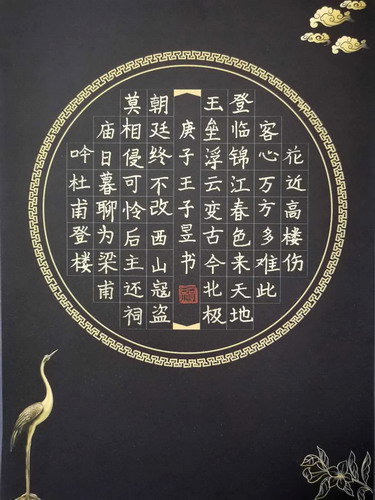 花近高楼伤
客心万方多难此
登临锦江春色来天地
王垒浮云变古今北极
庚子王子昱书
朝廷终不改西山寇盗
莫相侵可怜后主还祠
庙日暮聊为梁甫
吟杜甫登楼